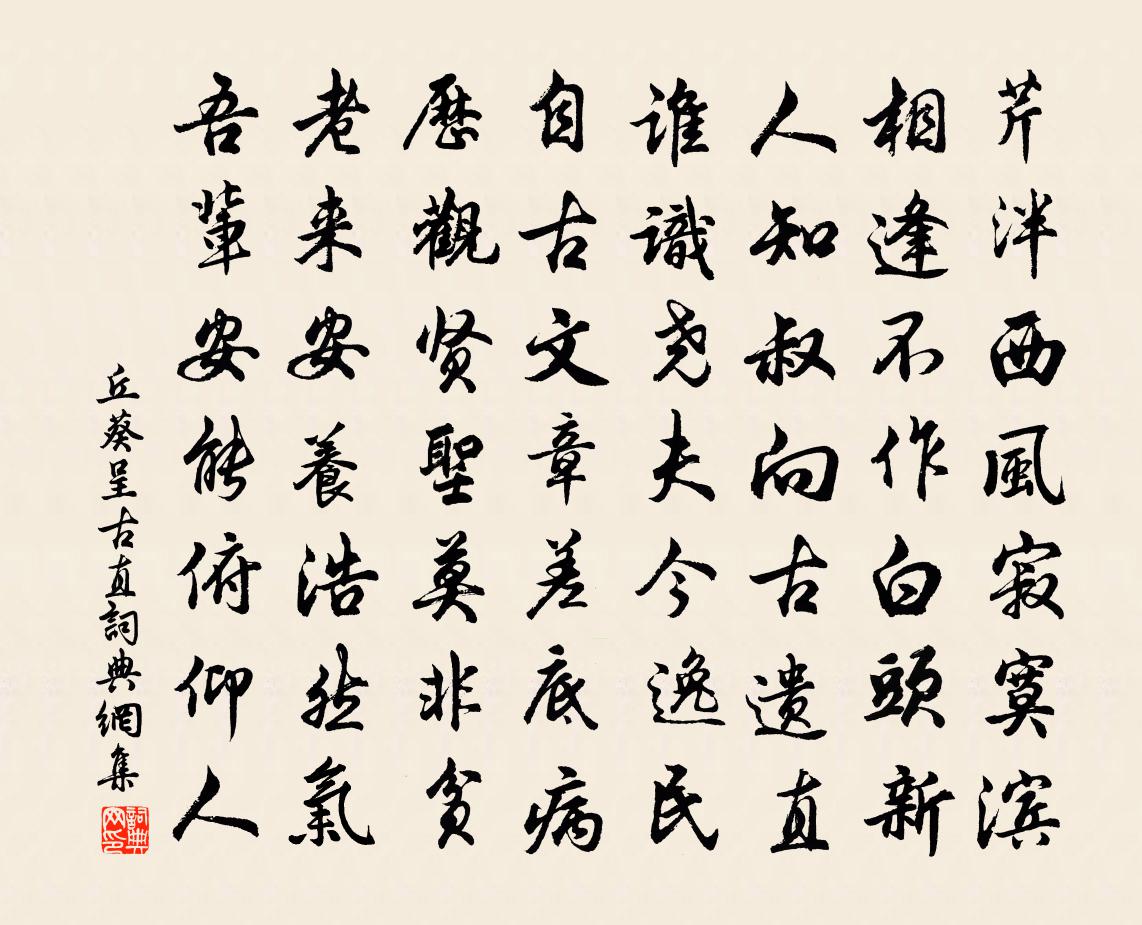 芹泮西風寂寞滨
相逢不作白頭新
人知叔向古遗直
誰識尧夫今逸民
自古文章差底病
歷觀贤聖莫非贫
老来安養浩然氣
吾輩安能俯仰人
丘葵呈古直詞典網集
詞典网印